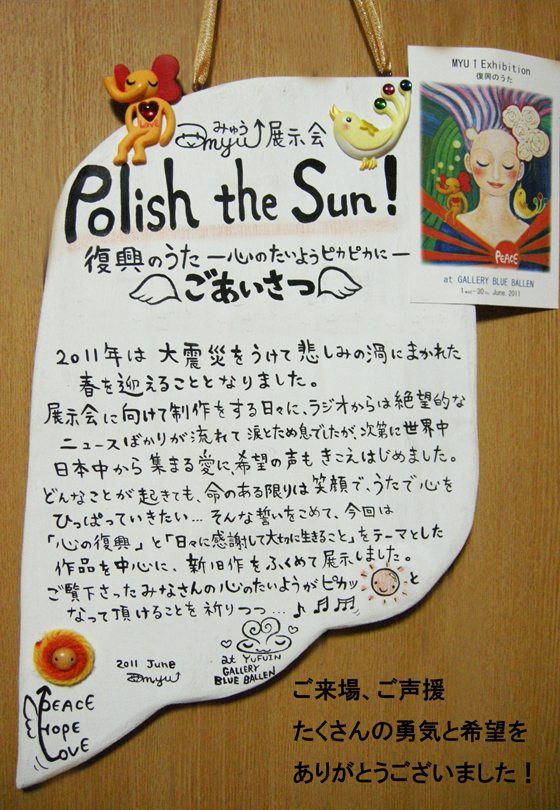 LOVE
みゅう
myu↑展示会
Polish the Sun!
復興のうた ー心のたいようピカピカにー
ごあいさつ
2011年は 大震災をうけて 悲しみの渦にまかれた
春を迎えることとなりました。
展示会に向けて制作をする日々に、ラジオからは絶望的な
ニュースばかりが流れて 涙とため息でしたが、次第に世界中
日本中から 集まる愛に、希望の声も きこえはじめました。
どんなことが 起きても、命のある限りは 笑顔で、うたで 心を
ひっぱっていきたい… そんな誓いをこめて、今回は
「心の復興」と「日々に感謝して大切に生きること」をテーマとした
作品を中心に、新旧作をふくめて展示しました。
ご覧下さったみなさんの心のたいようがピカッ と
なって頂けることを祈りつつ… ♪ ♫ ♬
2011 June
myu↑
at YUFUIN
GALLERY
BLUE BALLEN
PEACE
HOPE
LOVE
MYU↑Exhibition
復興のうた
PEACE
at GALLERY BLUE BALLEN
1wed-30Th, June. 2011
ご来場、ご声援
たくさんの勇気と希望を
ありがとうございました！